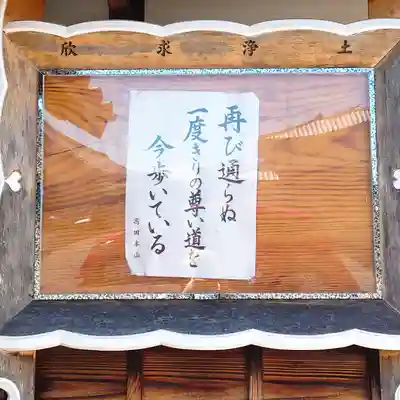 欣求浄土
再び通らぬ
一度きりの尊い道を
今歩いている
高田本山